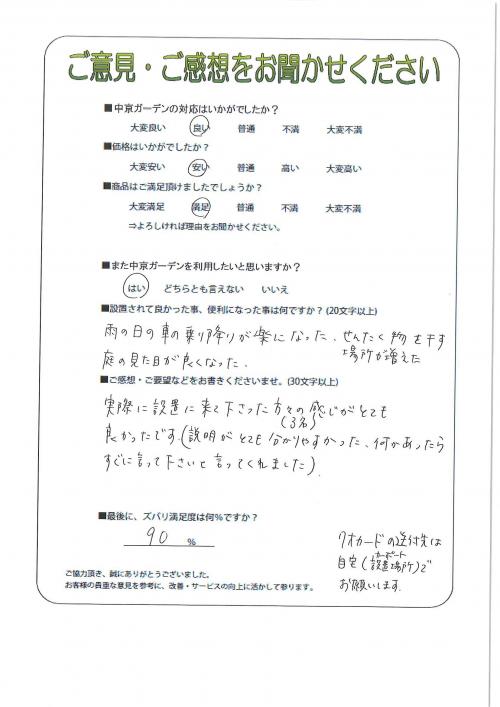 ご意見・ご感想をお聞かせください
■中京ガーデンの対応はいかがでしたか?
大変良い 良い 普通 不満 大変不満
■価格はいかがでしたか?
大変安い 安い 普通 高い 大変高い
■商品はご満足頂けましたでしょうか?
大変満足 満足 普通 不満 大変不満
⇒よろしければ理由をお聞かせください。
■また中京ガーデンを利用したいと思いますか?
はい どちらとも言えない いいえ
■設置されて良かった事、便利になった事は何ですか? (20文字以上)
雨の日の車の乗り降りが楽になった、せんたく物を干す
場所が増えた
庭の見た目が良くなった。
■ご感想・ご要望などをお書きくださいませ。(30文字以上)
実際に設置に来て下さった方々の感じがとても
(3名)
良かったです。(説明がとても分かりやすかった、何かあったら
すぐに言って下さいと言ってくれました)
■最後に、ズバリ満足度は何%ですか?
90 %
クオカードの送付先は
自宅(設置場所)で
カーポート
お願いします。
ご協力頂き、誠にありがとうございました。
お客様の貴重な意見を参考に、改善・サービスの向上に活かして参ります。